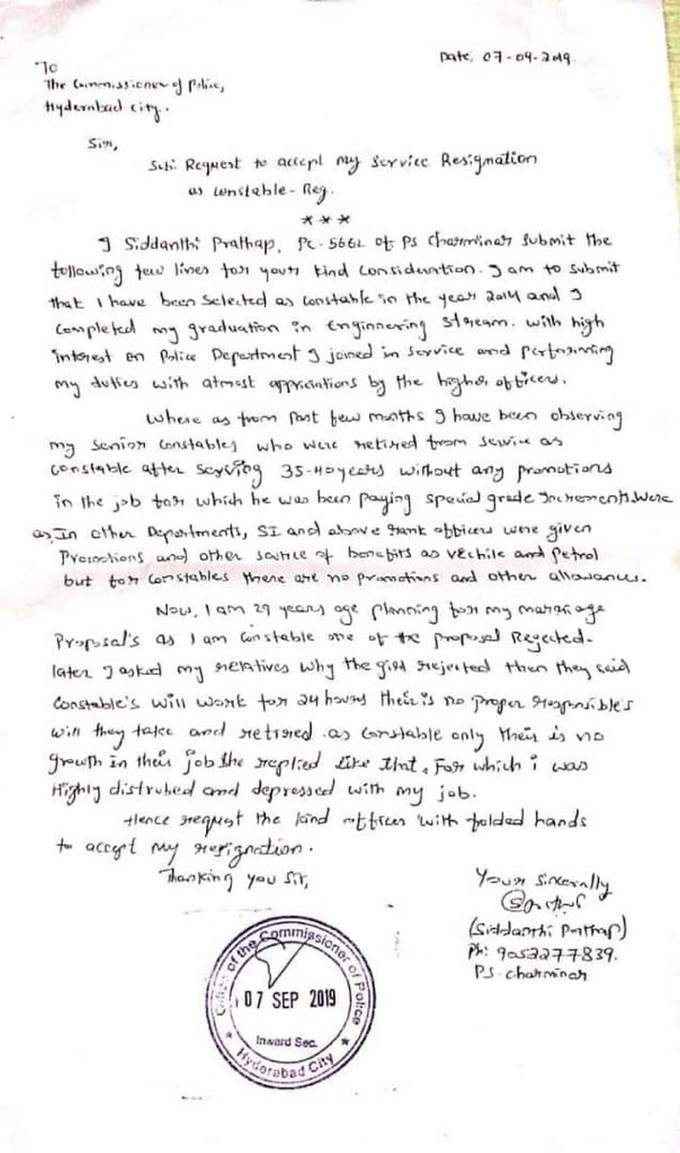 Date, 07-09-2019.
To
The Commissioner of Police,
Hyderabad city.
Sir,
Sub: Request to accept my Service Resignation
as constable - Reg.
***
I Siddanthi Prathap, PC. 5662 of PS Charminar submit the
following few lines for your kind consideration. I am to submit
that I have been selected as constable in the year 2014 and I
completed my graduation in Enginnering stream. with high
interest on Police Department I joined in service and performing
my duties with atmost appriciations by the higher officers.
Where as from Past few months I have been observing
my senior constables who were retired from service as
constable after serving 35-40 years without any promotions
in the job for which he was been paying special grade Increments. Were
as, In other Departments, SI and above rank officers were given
Promotions and other source of benefits as vechile and Petrol
but for constables there are no promotions and other allowances.
Now, I am 29 years age planning for my marriage
Proposal's as I am constable one of the proposal Rejected.
later I asked my relatives why the girl rejected then they said
Constable's will work for 24 hours their is no proper responsible's
will they take and retired as constable only their is no
growth in their job she replied like that, For which i was
Highly distrubed and depressed with my job.
Hence request the kind officer with folded hands
to accept my resignation.
Thanking you Sir,
Your sincerally
(Siddanthi Prathap)
Ph: 9053277839.
PS. Charminar
Office of the Commissioner of Police
07 SEP 2019
Inward Sec.
★ Hyderabad City ★